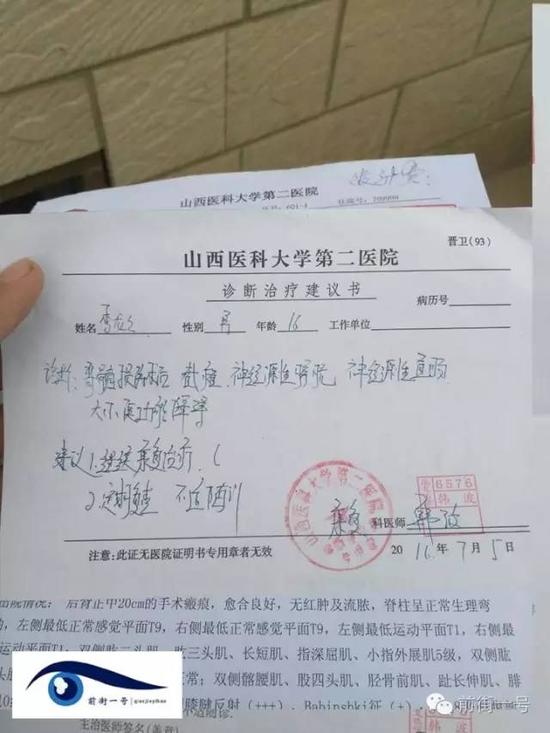 山西医科大学第二医院
晋卫(93)
山西医科大学第二医院
诊断治疗建议书
病历号
姓名 性别 男 年龄 16 工作单位
诊断: 脊髓损伤 截瘫 神经源性膀胱 神经源性直肠
大小便功能障碍
建议 1.继续康复治疗
2.定期复查 不适随诊
山西医科大学第二医院
6576
韩波
康复 科医师 韩波
注意:此证无医院证明书专用章者无效 2016年7月5日
后背正中20cm的手术瘢痕,愈合良好,无红肿及流脓,脊柱呈正常生理弯
左侧最低正常感觉平面T9,右侧最低正常感觉平面T9,左侧最低运动平面T1,右侧最
运动平面T1,双侧肱二头肌、肱三头肌、长短肌、指深屈肌、小指外展肌5级,双侧肱
正常;双侧髂腰肌、股四头肌、胫骨前肌、趾长伸肌、腓
膝腱反射(+++),Babinshki征(+)
前街一号
qianjieyihao
前街一号